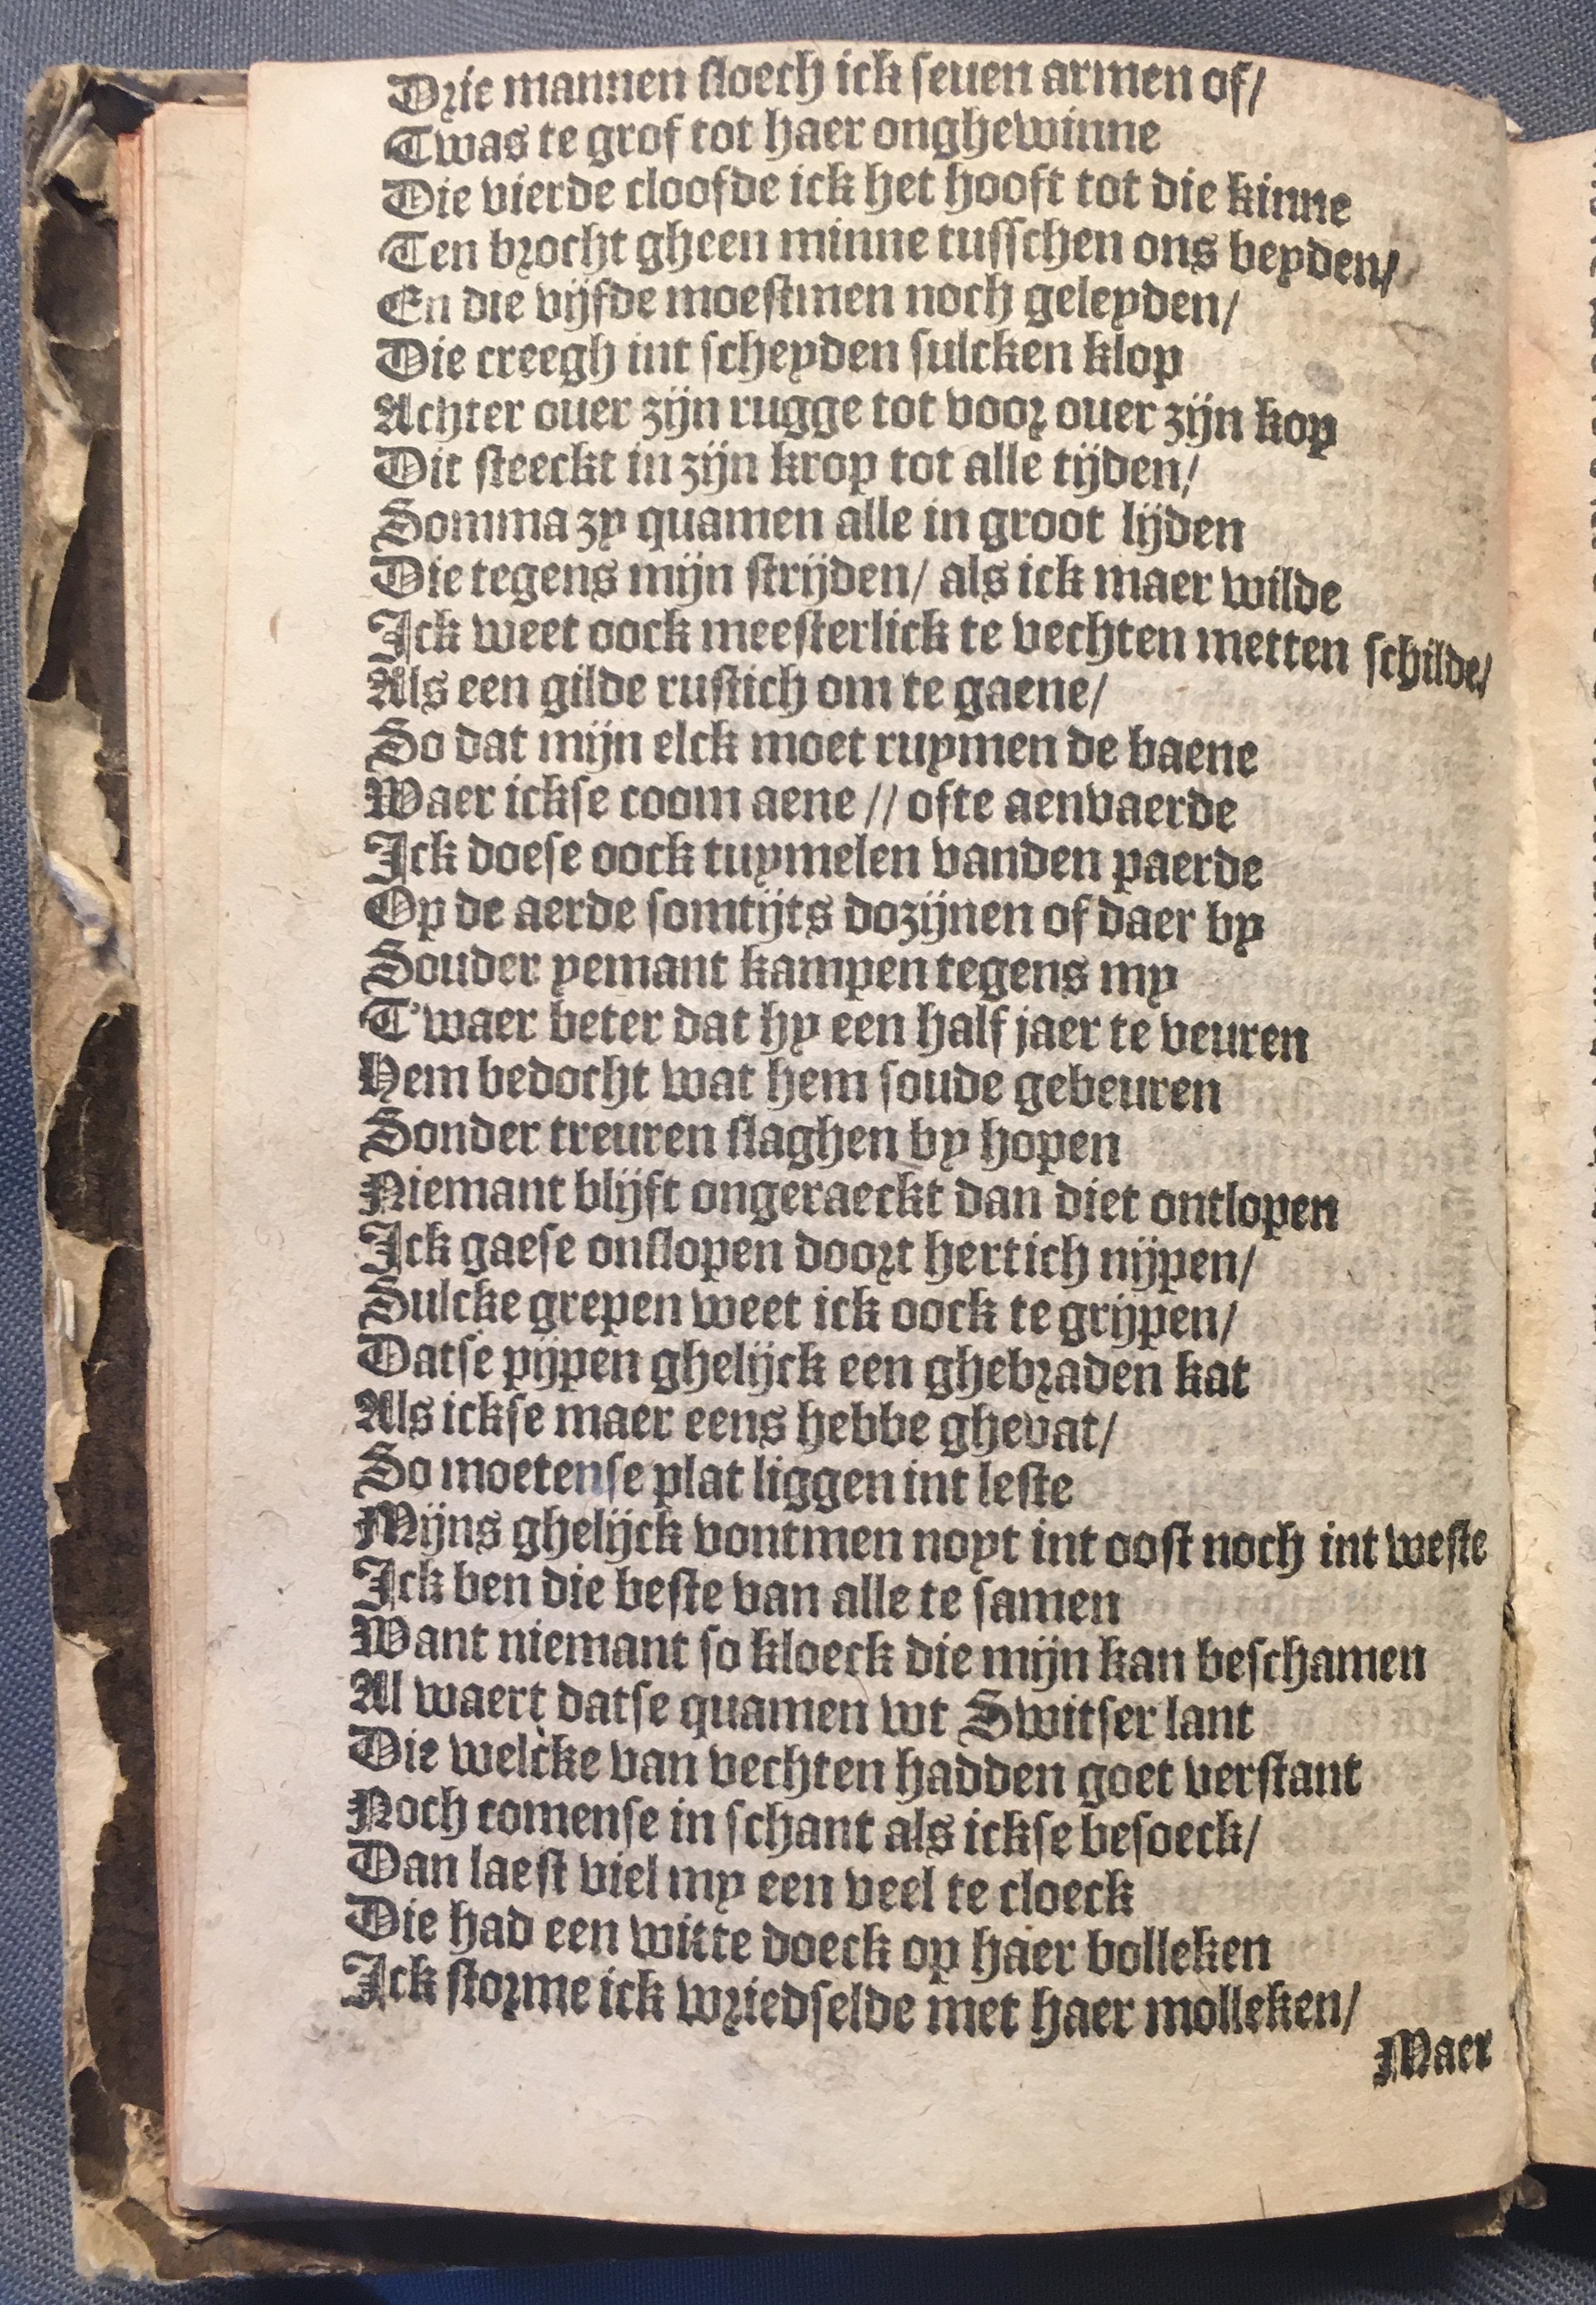 Drie mannen sloech ick seuen armen of/
Twas te grof tot haer onghewinne
Die vierde cloofde ick het hooft tot die kinne
Ten brocht gheen minne tusschen ons beyden/
En die vijfde moestmen noch geleyden/
Die creegh int scheyden sulcken klop
Achter ouer zijn rugge tot voor ouer zijn kop
Dit steeckt in zijn krop tot alle tijden/
Somma zy quamen alle in groot lijden
Die tegens mijn strijden/ als ick maer wilde
Ick weet oock meesterlick te vechten metten schilde/
Als een gilde rustich om te gaene/
So dat mijn elck moet ruymen de baene
Waer ickse coom aene // ofte aenvaerde
Ick doese oock tuymelen vanden paerde
Op de aerde somtijts dozijnen of daer by
Souder yemant kampen tegens my
T'waer beter dat hy een half jaer te veuren
Hem bedocht wat hem soude gebeuren
Sonder treuren slaghen by hopen
Niemant blijft ongeraeckt dan diet ontlopen
Ick gaese onslopen doort hertich nijpen/
Sulcke grepen weet ick oock te grijpen/
Datse pijpen ghelijck een ghebraden kat
Als ickse maer eens hebbe ghevat/
So moetense plat liggen int leste
Mijns ghelijck vontmen noyt int oost noch int weste
Ick ben die beste van alle te samen
Want niemant so kloeck die mijn kan beschamen
Al waert datse quamen wt Switser lant
Die welcke van vechten hadden goet verstant
Noch comense in schant als ickse besoeck/
Dan laest viel my een veel te cloeck
Die had een witte doeck op haer bolleken
Ick storme ick wriedselde met haer molleken/
Maer